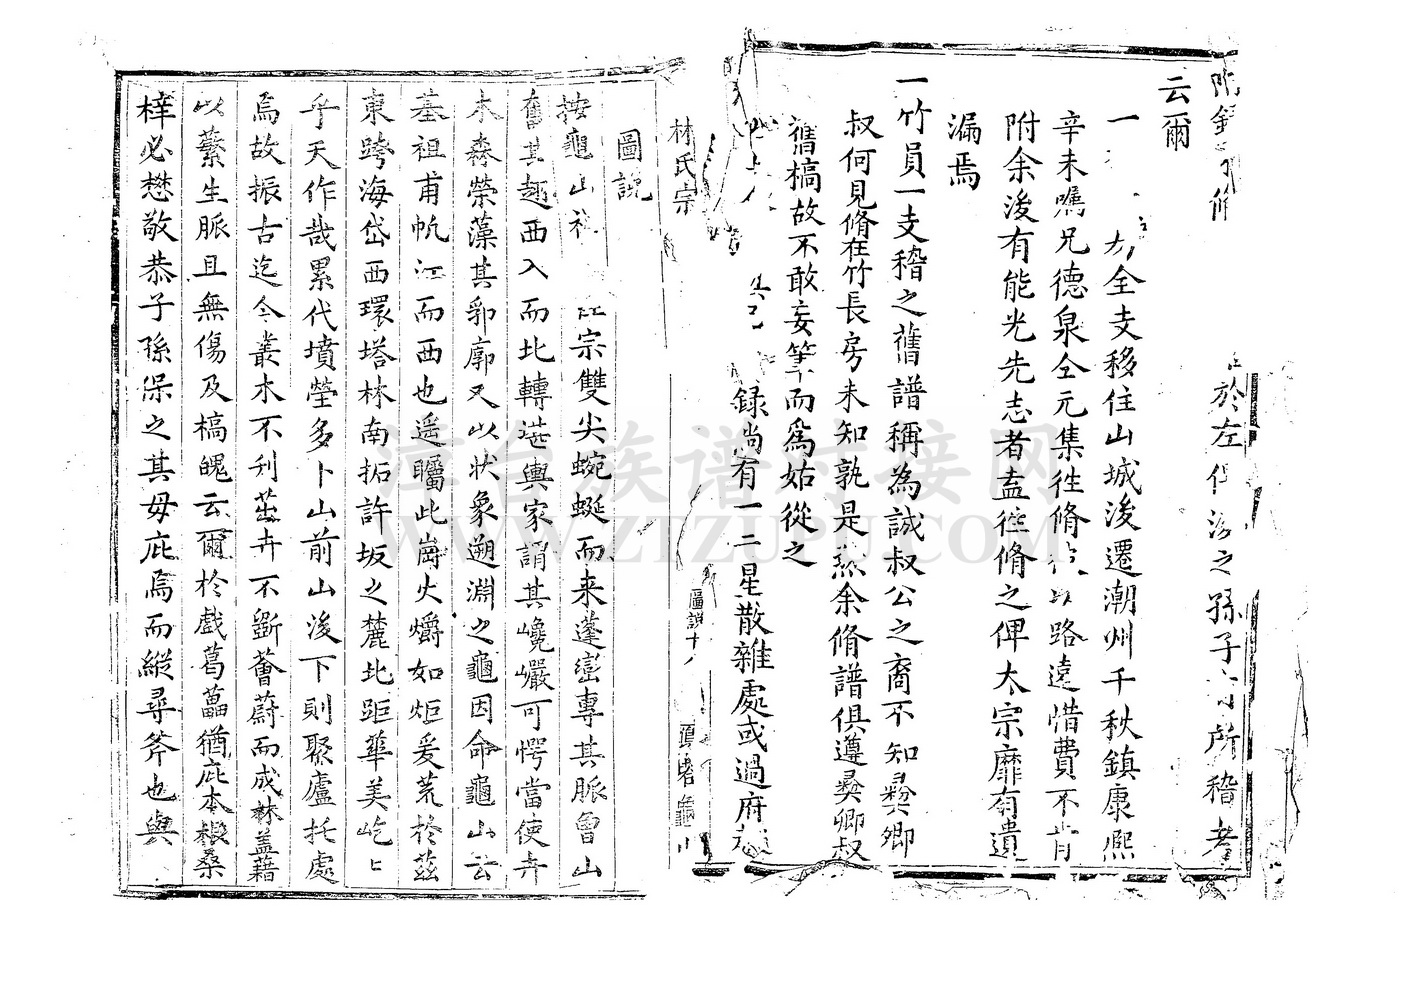 附 於左 之孫子 所稽考
云爾
一 全支移住山城後遷潮州千秋鎮康熙
辛未嘱兄德泉仝元集往脩 路遠惜費不肯
附余後有能光先志者盍往脩之俾大宗靡有遺
漏焉
一竹員一支稽之舊譜稱為誠叔公之裔不知彛卿
叔何見脩在竹長房未知孰是然余脩譜俱遵彛卿叔
舊槁故不敢妄筆而為姑從之
錄尚有一二星散雜處或過府越
林氏宗
圖説十八
頭碧龜山
圖説
按龜山 宗雙尖蜿蜒而来蓬巒專其脈曾山
奮其趐西入而北轉 輿家謂其巉巖可愕當使卉
木森榮藻其郛廓又以状象遡淵之龜因命龜山云
墓祖甫帆江而西也遥矚此崗火爝如炬爰荒於茲
東跨海岱西環塔林南拓許坂之麓北距華美屹屹
乎天作哉累代墳塋多卜山前山後下則聚廬托處
焉故振古迄今叢木不刋茁卉不斵薈蔚而成林盖藉
以蕃生脈且無傷及槁魄云爾於戲葛藟猶庇本根桑
梓必懋敬恭子孫保之其毋庇焉而縱尋斧也與
漳台族谱对接网
WWW.ZTZUPU.COM